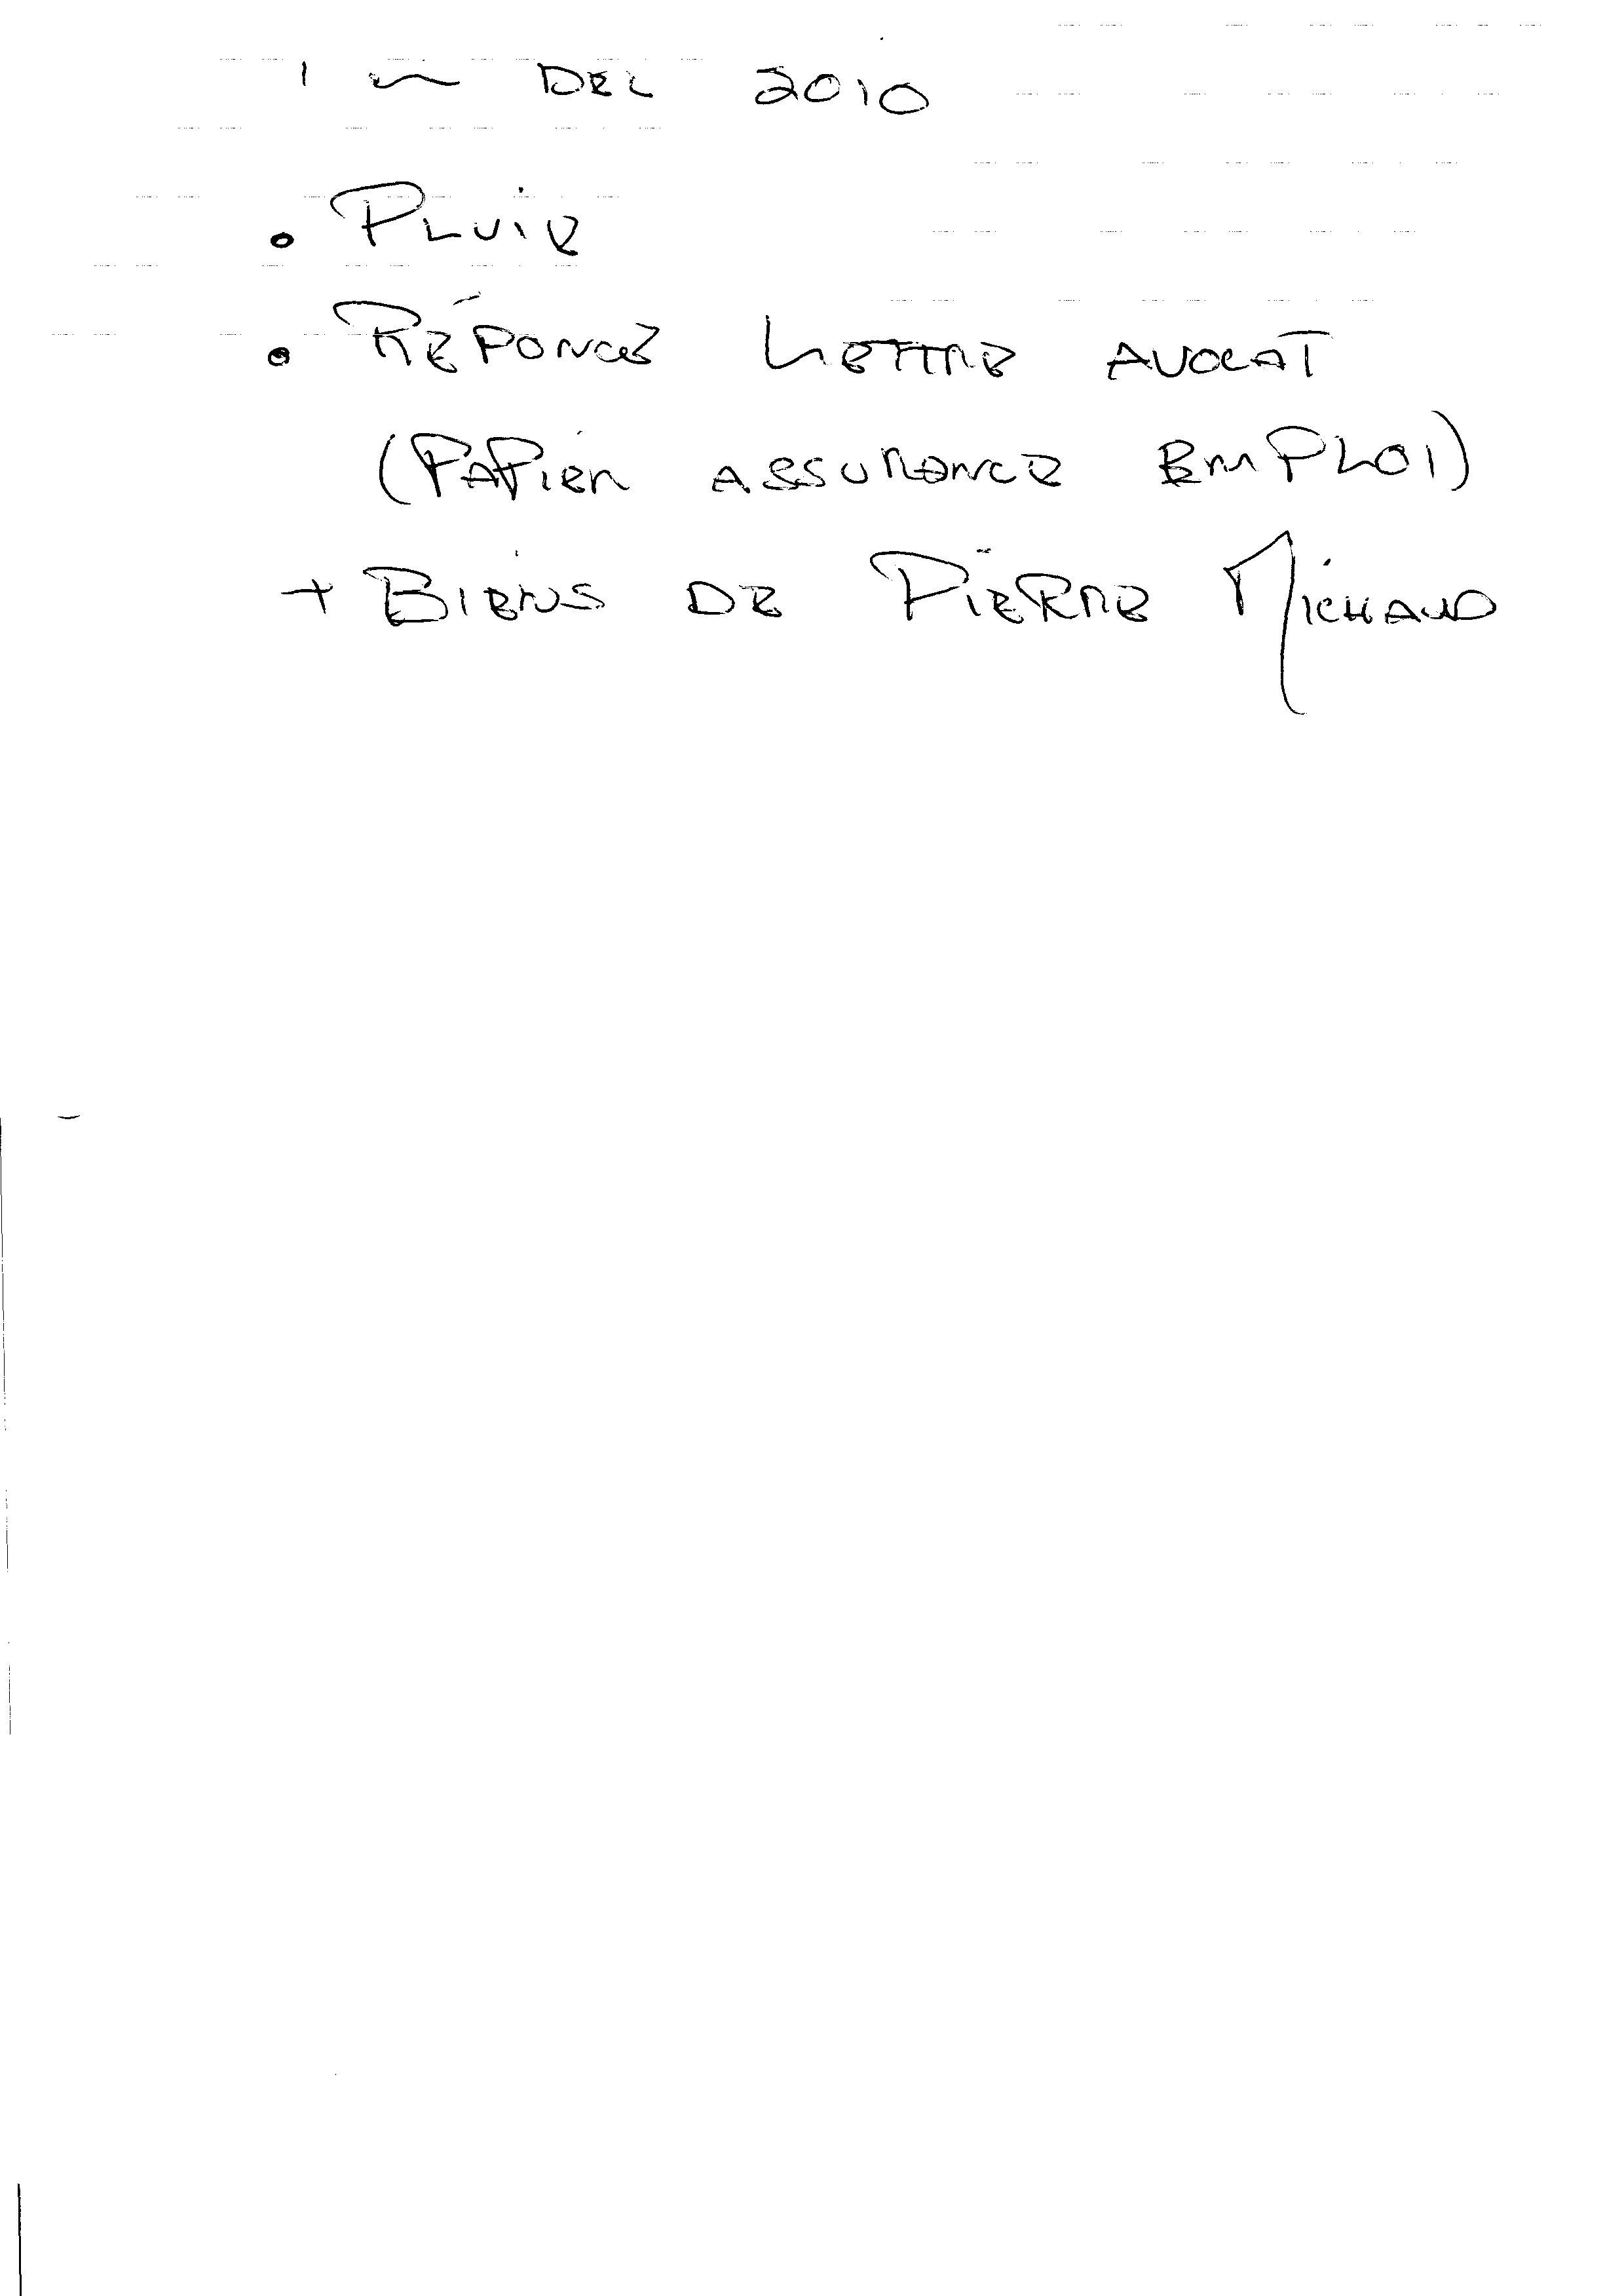 1 er DEC 2010
• PLUIE
• RÉPONCE LETTRE AVOCAT
(PAPIER ASSURANCE EMPLOI)
+ BIENS DE PIERRE MICHAUD